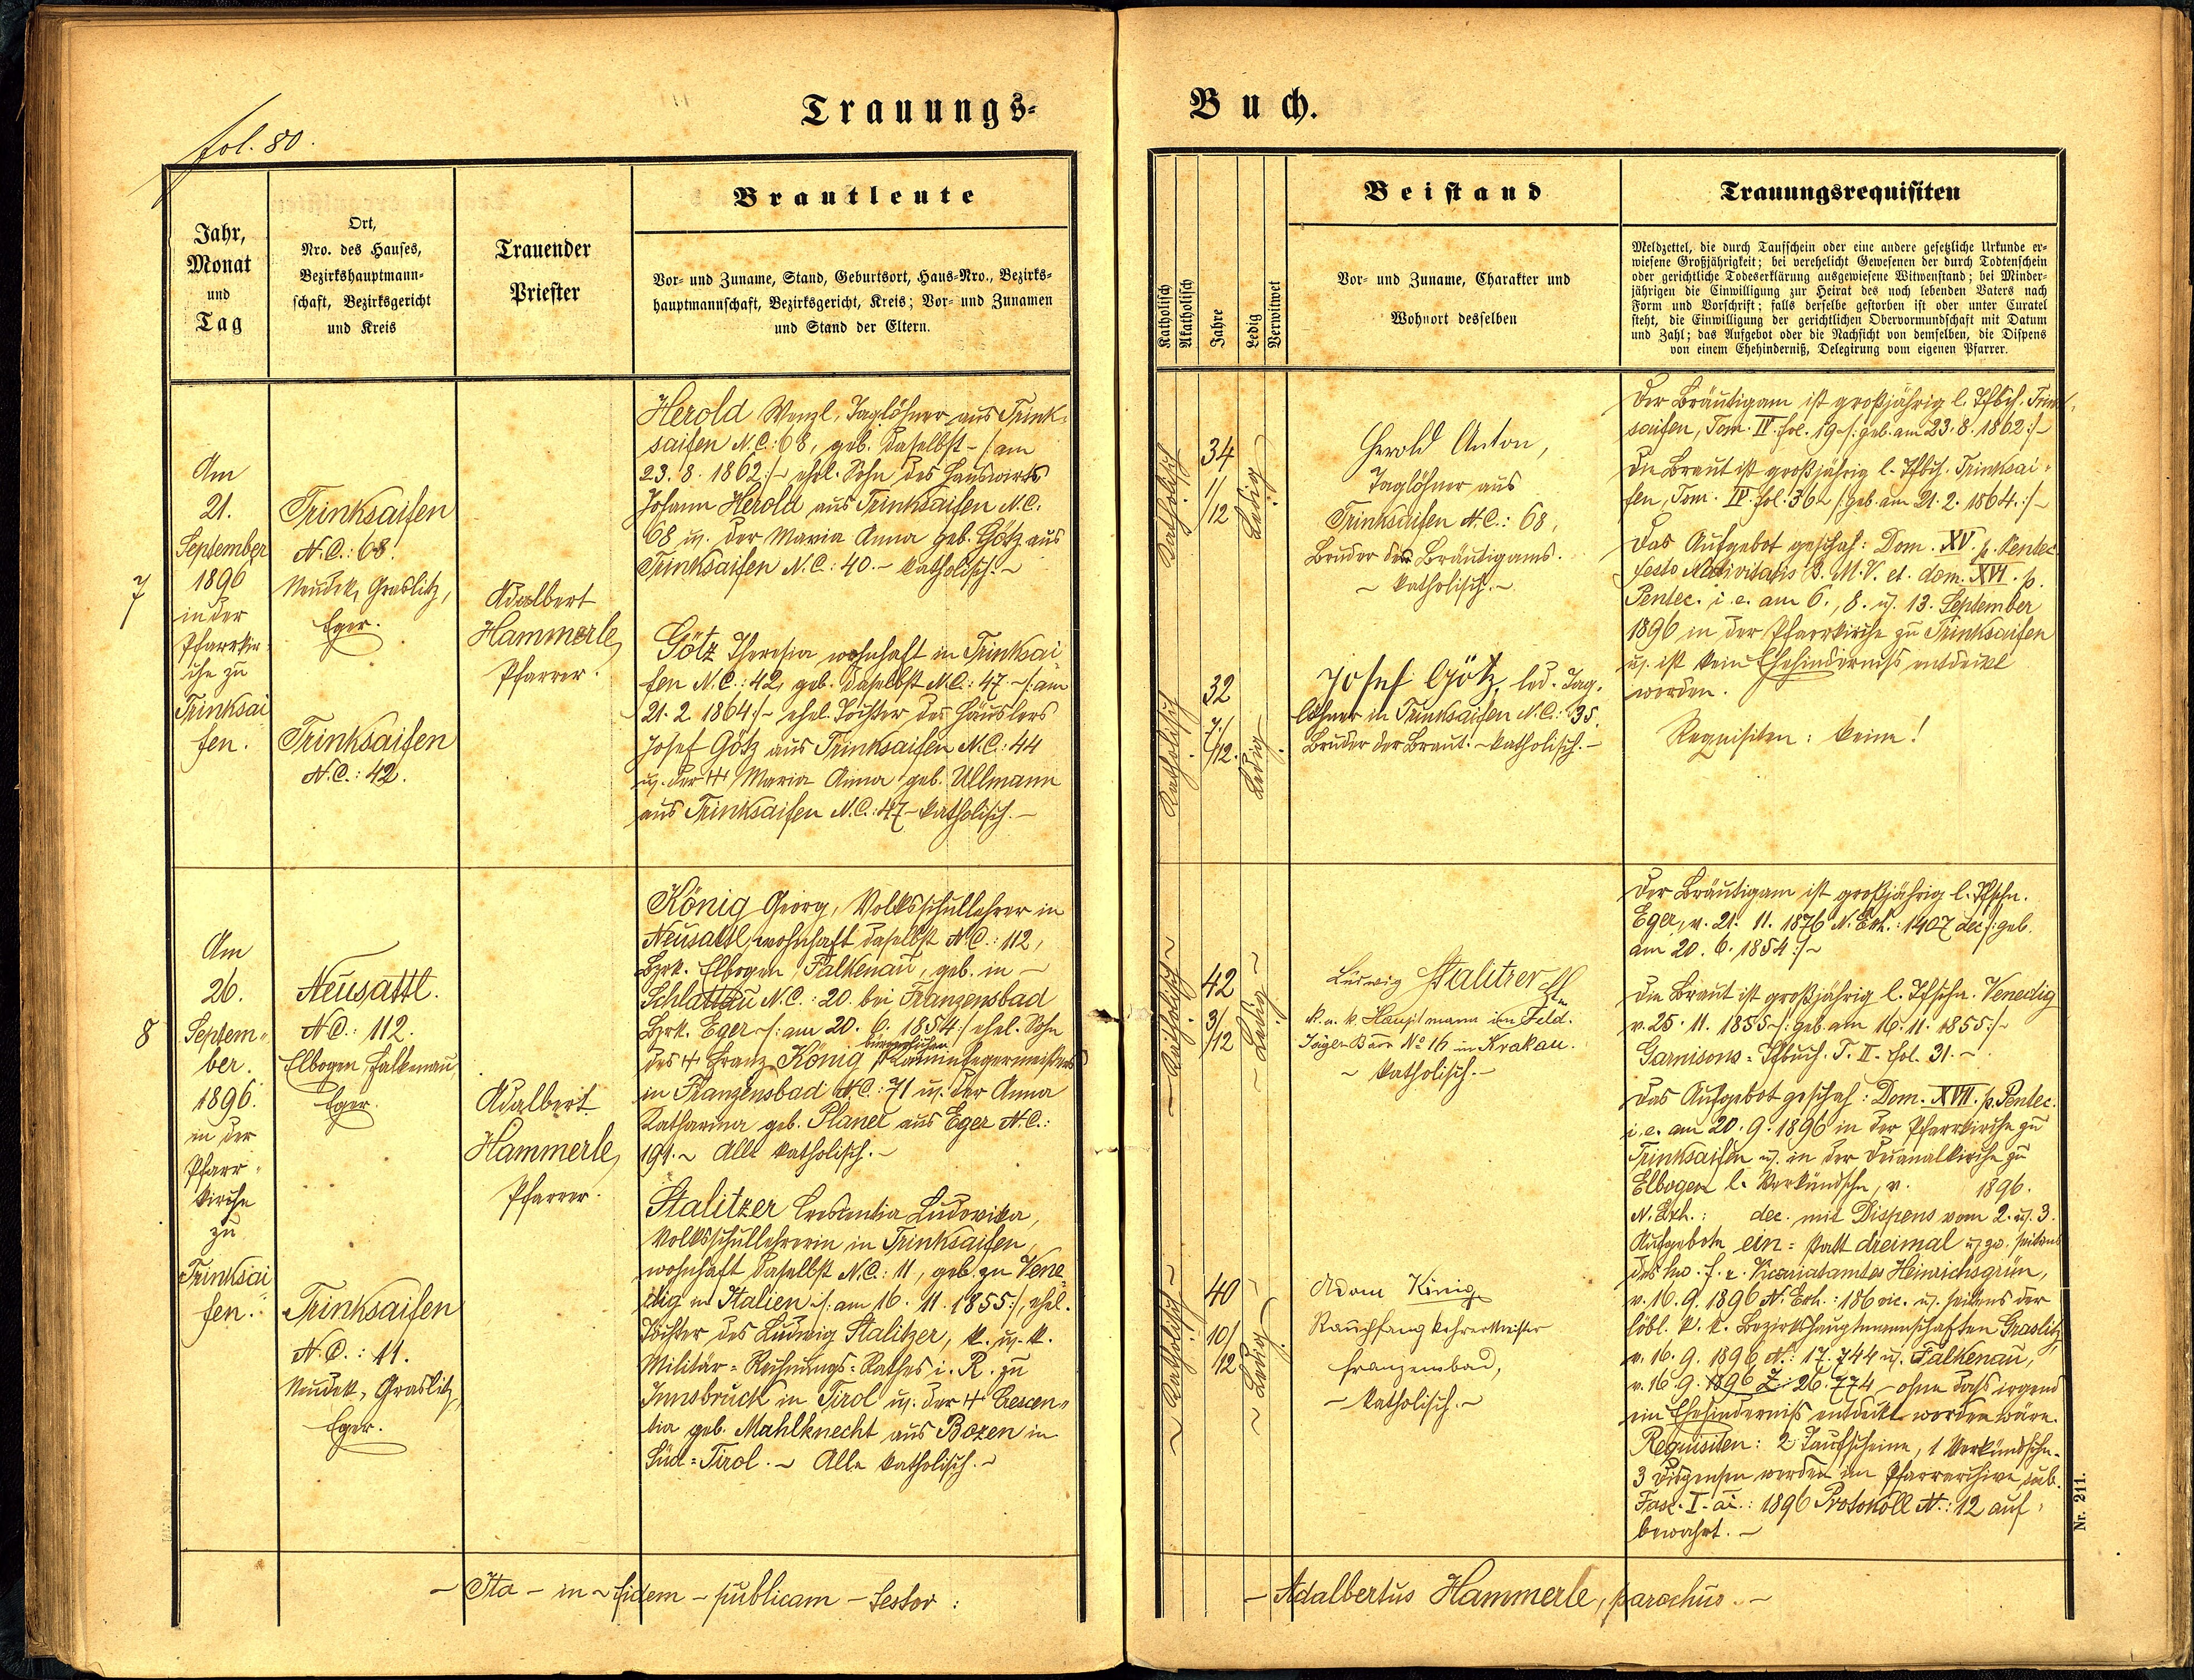 fol. 80.
Trauungs-
Buch.
Jahr,
Monat
und
Tag
Ort,
Nro. des Hauses,
Bezirkshauptmann-
schaft, Bezirksgericht
und Kreis
Trauender
Priester
Brautleute
Vor- und Zuname, Stand, Geburtsort, Haus-Nro., Bezirks-
hauptmannschaft, Bezirksgericht, Kreis; Vor- und Zunamen
und Stand der Eltern.
Katholisch
Akatholisch
Jahre
Ledig
Verwitwet
Beistand
Vor- und Zuname, Charakter und
Wohnort desselben
Trauungsrequisiten
Meldzettel, die durch Taufschein oder eine andere gesetzliche Urkunde er-
wiesene Großjährigkeit; bei verehelicht Gewesenen der durch Todtenschein
oder gerichtliche Todeserklärung ausgewiesene Witwenstand; bei Minder-
jährigen die Einwilligung zur Heirat des noch lebenden Vaters nach
Form und Vorschrift; falls derselbe gestorben ist oder unter Curatel
steht, die Einwilligung der gerichtlichen Obervormundschaft mit Datum
und Zahl; das Aufgebot oder die Nachsicht von demselben, die Dispens
von einem Ehehinderniß, Delegirung vom eigenen Pfarrer.
7
Am
21.
September
1896
in der
Pfarrkir-
che zu
Trinksai
fen.
Trinksaifen
N.C.: 68.
Neudek, Graslitz,
Eger.
Trinksaifen
N.C.: 42.
Adalbert
Hammerle,
Pfarrer.
Herold Wenzl, Taglöhner aus Trink-
saifen N.C.: 68, geb. daselbst -/: am
23. 8. 1862 :/- ehel. Sohn des Hauswirts
Johann Herold aus Trinksaifen N.C.
68 u. der Maria Anna geb. Götz aus
Trinksaifen N.C.: 40. - katholisch. -
Götz Theresia wohnhaft in Trinksai
fen N.C.: 42, geb. daselbst N.C.: 47 -/: am
21. 2. 1864 :/- ehel. Tochter des Häuslers
Josef Götz aus Trinksaifen N.C.: 44
u. der Maria Anna geb. Ullmann
aus Trinksaifen N.C.: 47 - katholisch. -
Katholisch
34
1/12
Ledig
Herold Anton,
Taglöhner aus
Trinksaifen N.C.: 68,
Bruder des Bräutigams.
- katholisch. -
Katholisch
32
7/12.
Ledig
Josef Götz, led. Tag-
löhner in Trinksaifen N.C.: 35.
Bruder der Braut. - katholisch. -
Der Bräutigam ist großjährig l. Tfbch. Trink-
saifen, Tom. IV. fol. 19 -/: geb. am 23. 8. 1862 :/-
Die Braut ist großjährig l. Tfbch. Trinksai-
fen, Tom. IV. fol. 362 /: geb. am 21. 2. 1864. :/-
Das Aufgebot geschah: Dom. XV. p. Pentec.
festo Nativitatis B. M. V. et. dom. XVI. p.
Pentec. i. e. am 6., 8. u. 13. September
1896 in der Pfarrkirche zu Trinksaifen
u. ist kein Ehehinderniß entdeckt
worden.
Requisiten: keine!
8
Am
26.
Septem-
ber.
1896.
in der
Pfarr-
kirche
zu
Trinksai
fen.
Neusattl.
N.C.: 112.
Elbogen, Falkenau,
Eger.
Trinksaifen
N.C.: 11.
Neudek, Graslitz,
Eger.
Adalbert
Hammerle,
Pfarrer.
König Georg, Volksschullehrer in
Neusattl, wohnhaft daselbst N.C.: 112,
Bzrk. Elbogen, Falkenau, geb. in -
Schlattau N.C.: 20. bei Franzensbad
Bzrk. Eger -/: am 20. 6. 1854 :/ ehel. Sohn
des Franz König bürgerlichen Kaminfegermeisters
in Franzensbad N.C.: 71 u. der Anna
Katharina geb. Planer aus Eger N.C.:
191. - Alle katholisch. -
Stalitzer Crescentia Ludovika,
Volksschullehrerin in Trinksaifen,
wohnhaft daselbst N.C.: 11, geb. zu Vene
dig in Italien /: am 16. 11. 1855 :/, ehel.
Tochter des Ludwig Stalitzer, k. u. k.
Militär-Rechnungs-Rathes i. R. zu
Innsbruck in Tirol u. der Crescen-
tia geb. Mahlknecht aus Bozen in
Süd-Tirol. - Alle katholisch. -
Katholisch
42
3/12
Ledig
Ludwig Stalitzer
k. u. k. Hauptmann im Feld-
Jäger Baon No 16 in Krakau.
- katholisch. -
Katholisch
40
10/12
Ledig
Adam König
Rauchfangkehrermeister
Franzensbad,
- katholisch. -
Der Bräutigam ist großjährig l. Tfschn.
Eger, v. 21. 11. 1876 N. Exh.: 1407 dec /: geb.
am 20. 6. 1854 :/-
Die Braut ist großjährig l. Tfschn. Venedig
v. 25. 11. 1855 -/: geb. am 16. 11. 1855 :/-
Garnisons-Tfbuch. T. II. fol. 31. -
Das Aufgebot geschah: Dom. XVII. p. Pentec.
i. e. am 20. 9. 1896 in der Pfarrkirche zu
Trinksaifen u. in der Decanalkirche zu
Elbogen l. Verkündschn, v. 1896.
N. Exh.: dec. mit Dispens vom 2. u. 3.
Aufgebote ein- statt dreimal u. zw. seitens
des hw. f. e. Vicariatamtes Heinrichsgrün,
v. 16. 9. 1896 N. Exh.: 186 vic. u. seitens der
löbl. k. k. Bezirkshauptmannschaften Graslitz,
v. 16. 9. 1896, N.: 17.744 u. Falkenau,
v. 16. 9. 1896 Z.: 26.774 - ohne daß irgend
ein Ehehinderniß entdeckt worden wäre.
Requisiten: 2 Taufscheine, 1 Verkündschn.
3 Dispensen werden im Pfarrarchive sub.
Fasc. I. ai.: 1896 Protokoll N.: 12 auf-
bewahrt. -
Nr. 211.
- Ita - in - fidem - publicam - testor :
- Adalbertus Hammerle, parochus. -